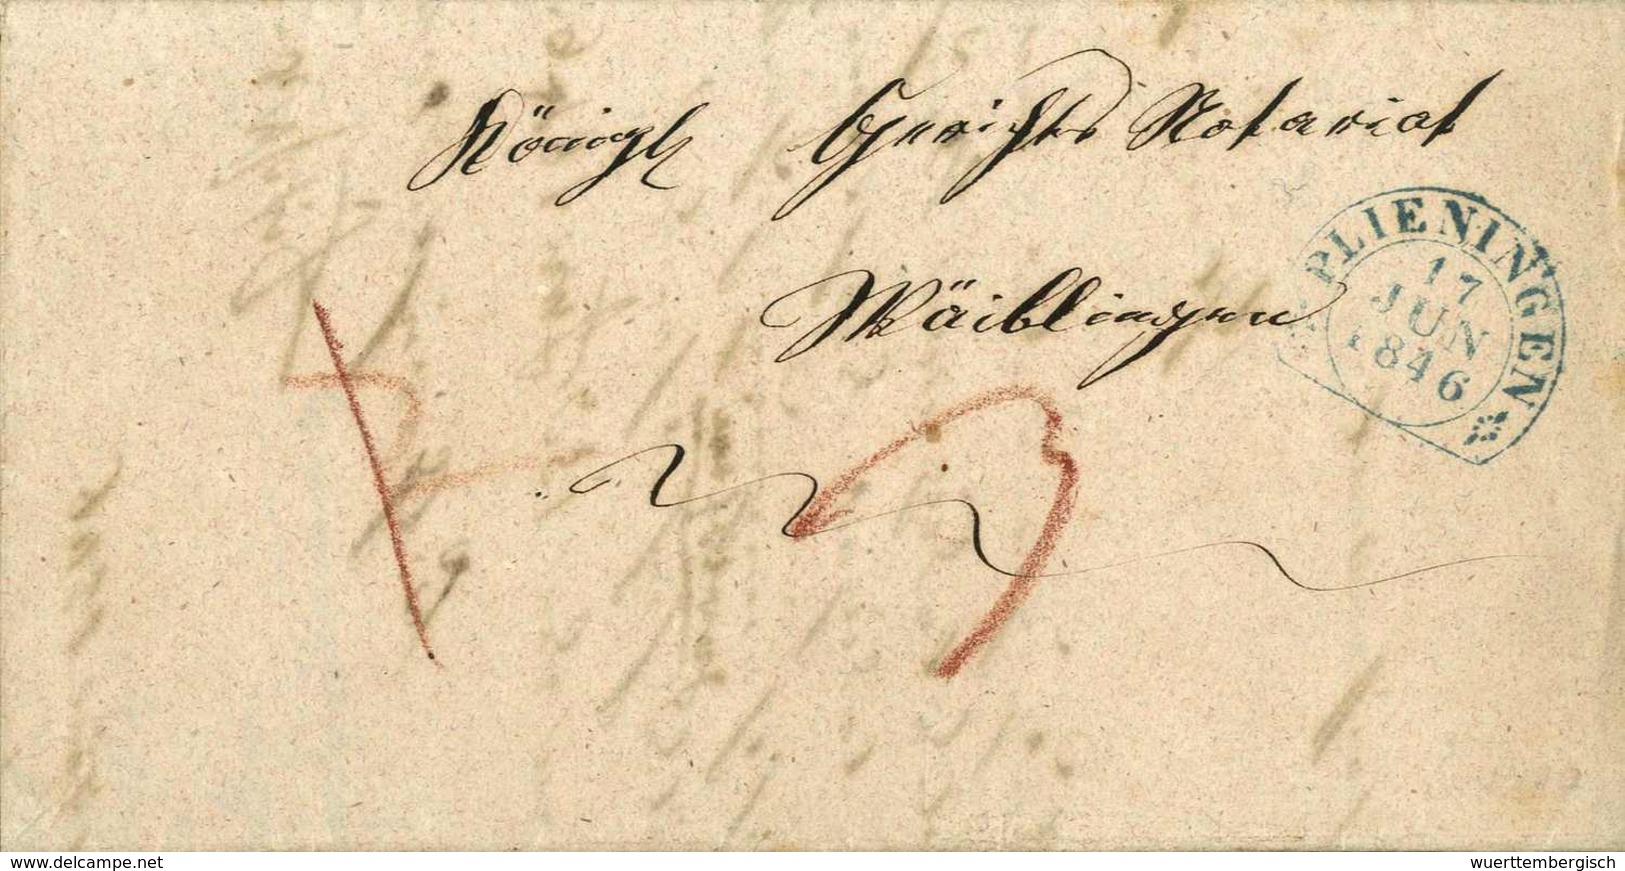 Königl. Gerichts Notariat
Waiblingen
PLIENINGEN
17
JUN
1846
www.delcampe.net
wuerttembergisch